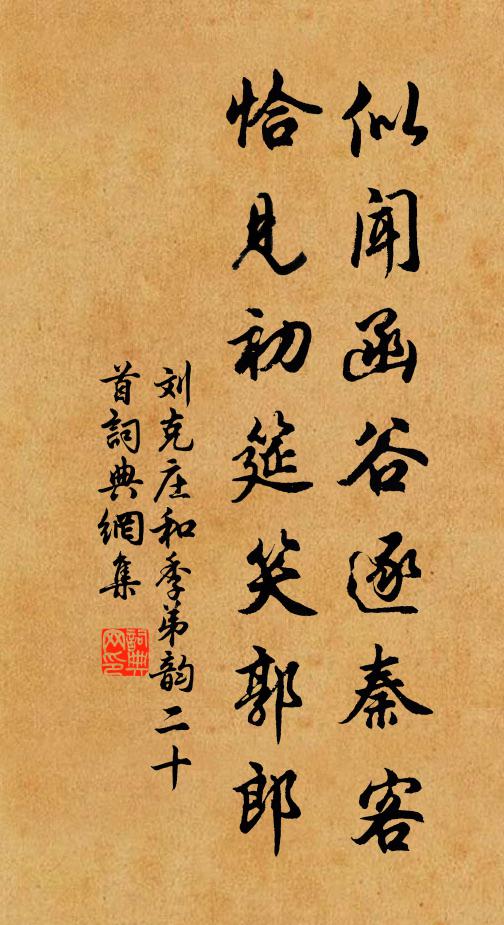 似闻函谷逐秦客
恰见初筵笑郭郎
刘克庄和季弟韵二十
首詞典網集
詞典
网印